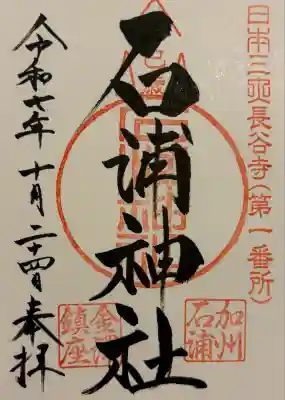 日本三所長谷寺(第一番所)
石浦神社
加州
石浦
金澤
鎮座
令和七年十月二十四日奉拝